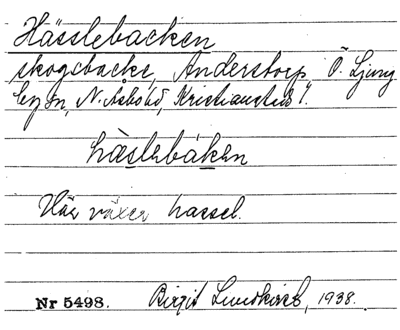 Hässlebacken
skogsbacke, Anderstorp, Ö. Ljung
by sn, N. Åsbo hd, Kristianstads l.
hàslebáken
Här växer hassel.
Nr 5498. Birgit Lundkvist, 1938.